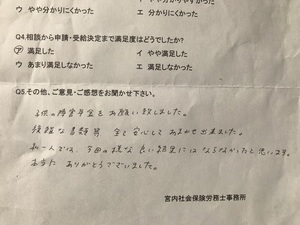 ウ やや分かりにくかった エ 分かりにくかった
Q4.相談から申請・受給決定まで満足度はどうでしたか?
㋐ 満足した イ やや満足した
ウ あまり満足しなかった エ 満足しなかった
Q5.その他、ご意見・ご感想をお聞かせ下さい。
子供の障害年金をお願い致しました。
複雑な書類等 全て安心して おまかせ出来ました。
私一人では、今回の様な良い結果にはならなかったと思います。
本当に ありがとうございました。
宮内社会保険労務士事務所